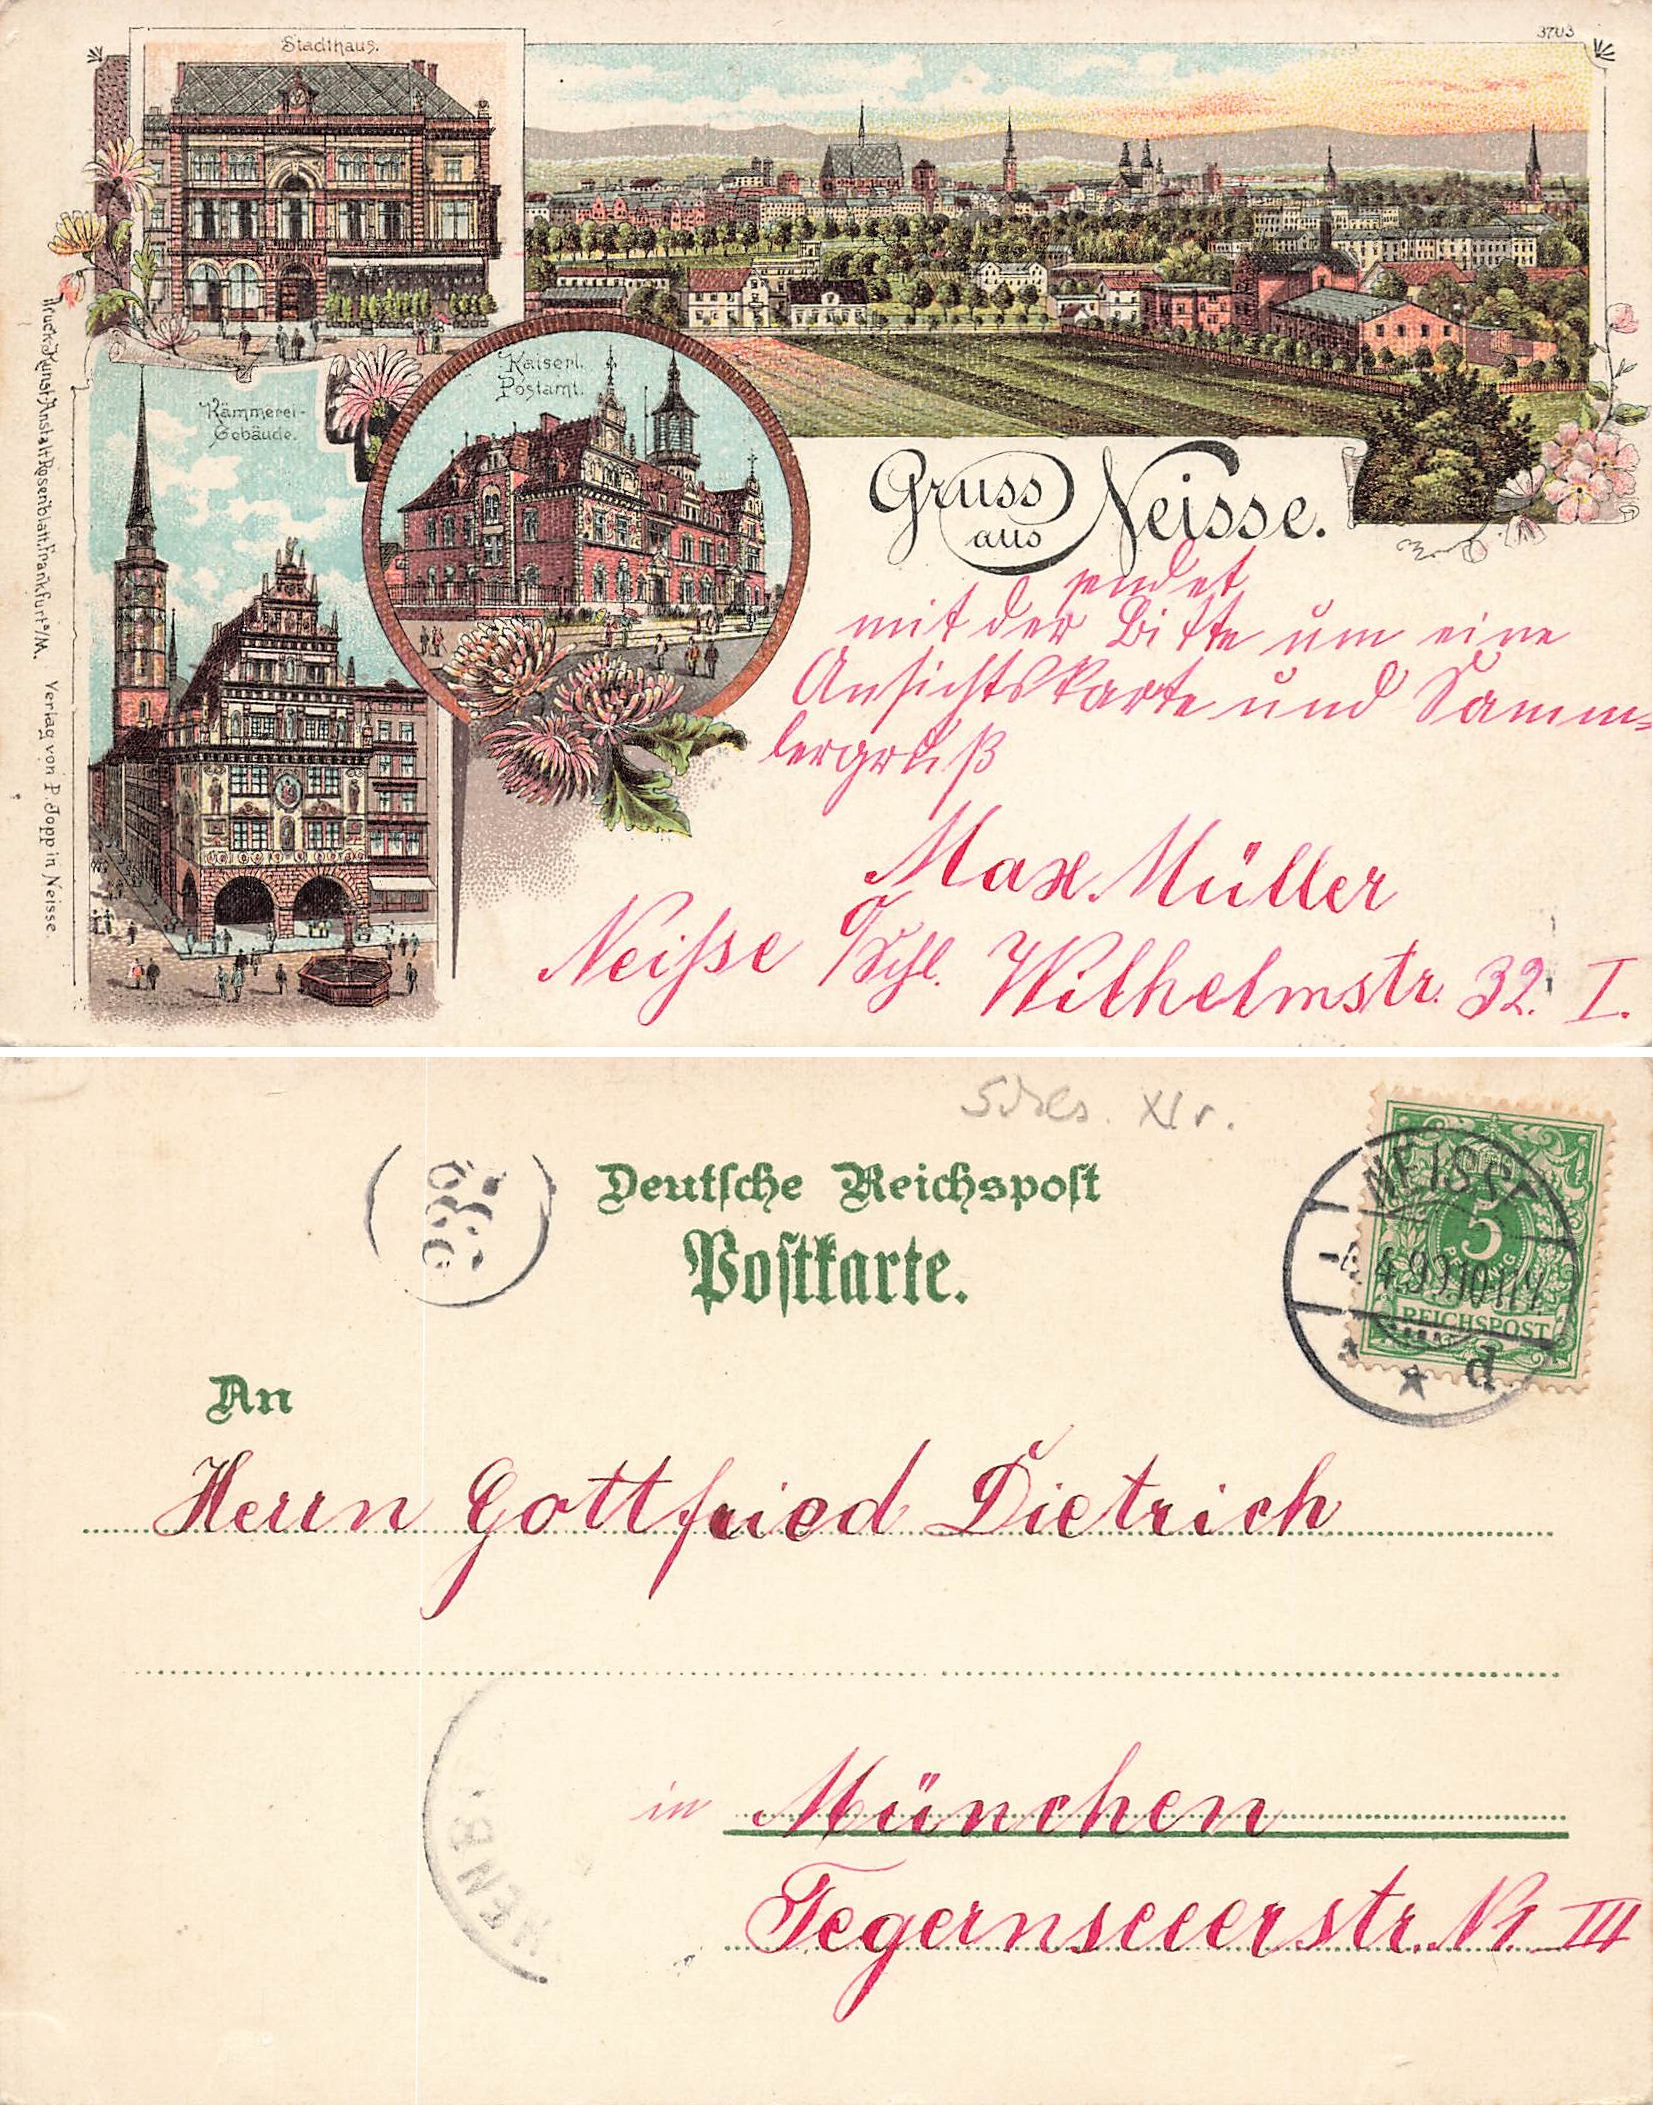 3703
Stadthaus.
Kaiserl.
Postamt.
Kämmerei-
Gebäude.
Gruss
aus Neisse.
sendet
mit der Bitte um eine
Ansichtskarte und Samm-
lergruß
Max Müller
Neisse /Schl. Wilhelmstr. 32. I.
Druck Kunst-Anstalt Rosenblatt, Frankfurt a/M. Verlag von P. Jopp in Neisse.
Schles. XI r.
Deutsche Reichspost
Postkarte.
NEISSE
4 99 10-11 V.
d
5
PFENNIG
REICHSPOST
An
Herrn Gottfried Dietrich
in München
Tegernseeerstr. Nr. III